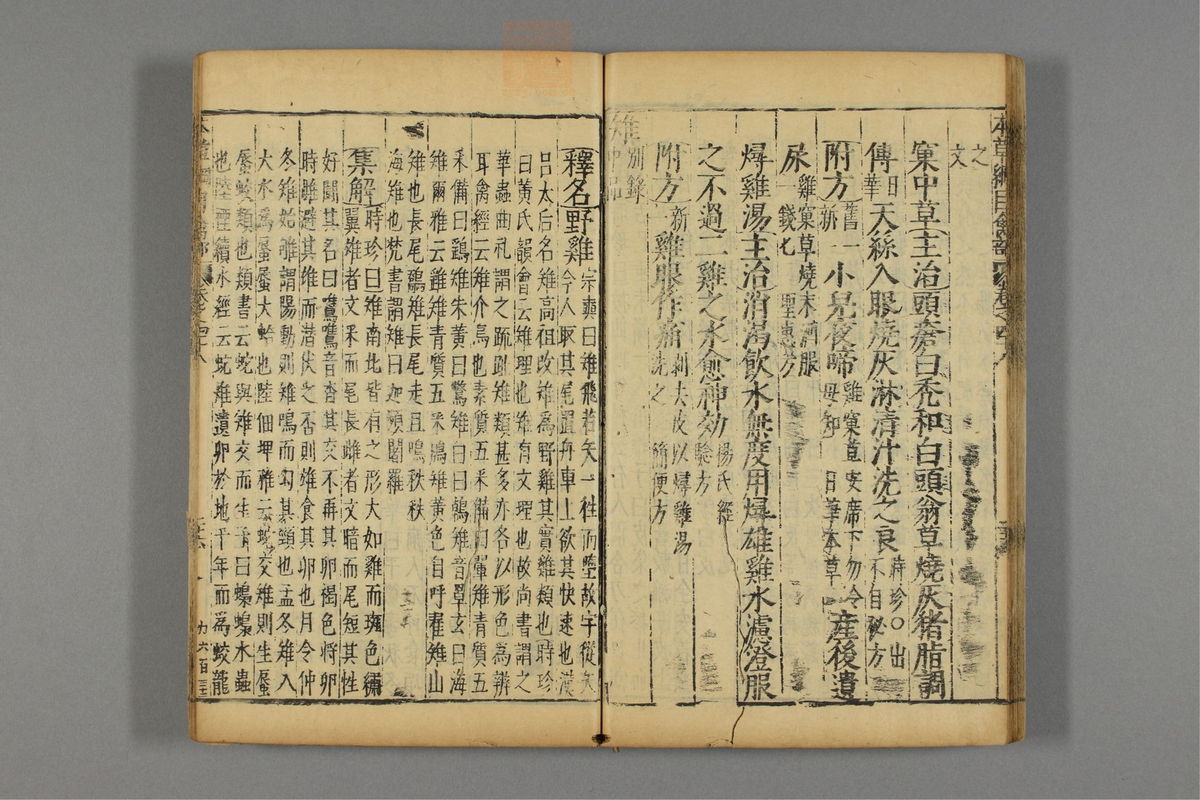 本草綱目禽部 卷之四十八
之
文
窠中草主治頭瘡白禿和白頭翁草燒灰猪脂調
傅日華天絲入眼燒灰淋清汁洗之良時珍○出不自秘方
附方舊一新小兒夜啼雞窠草安席下勿令母知 日華本草產後遺
尿雞窠草燒末酒服一錢匕 聖惠方
燖雞湯主治消渴飲水無度用燖雄雞水濾澄服
之不過二雞之水愈神効楊氏經驗方
附方新雞眼作痛剥去皮以燖雞湯洗之 簡便方
雉別錄中品
釋名野雞宗奭曰雉飛若矢一往而墮故字從矢
今人取其尾置舟車上欲其快速也漢
呂太后名雉高祖改雉爲野雞其實雞類也時珍
曰黃氏韻會云雉理也雉有文理也故尚書謂之
華蟲曲礼謂之疏趾雉類甚多亦各以形色爲辨
耳禽經云雉介鳥也素質五采備曰翬雉青質五
采備曰鷂雉朱黃曰鷩雉白曰鵫雉音罩玄曰海
雉爾雅云鷂雉青質五采鳪雉黃色自呼翟雉山
雉也長尾鷮雉長尾走且鳴秩秩
海雉也梵書謂雉曰迦頻闍羅
集解時珍曰雉南北皆有之形大如雞而斑色繡
翼雄者文采而尾長雌者文暗而尾短其性
好鬪其名曰鷕鷕音杳其交不再其卵褐色將卵
時雌避其雄而潛伏之否則雄食其卵也月令仲
冬雉始雊謂陽動則雉鳴而勾其頸也孟冬雉入
大水爲蜃蜃大蛤也陸佃埤雅云蛇交雉則生蜃
蜃蛟類也類書云蛇與雉交而生子曰蟂蟂水蟲
也陸禋續水經云蛇雉遺卵於地千年而爲蛟龍
本草綱目禽部 卷之四十八